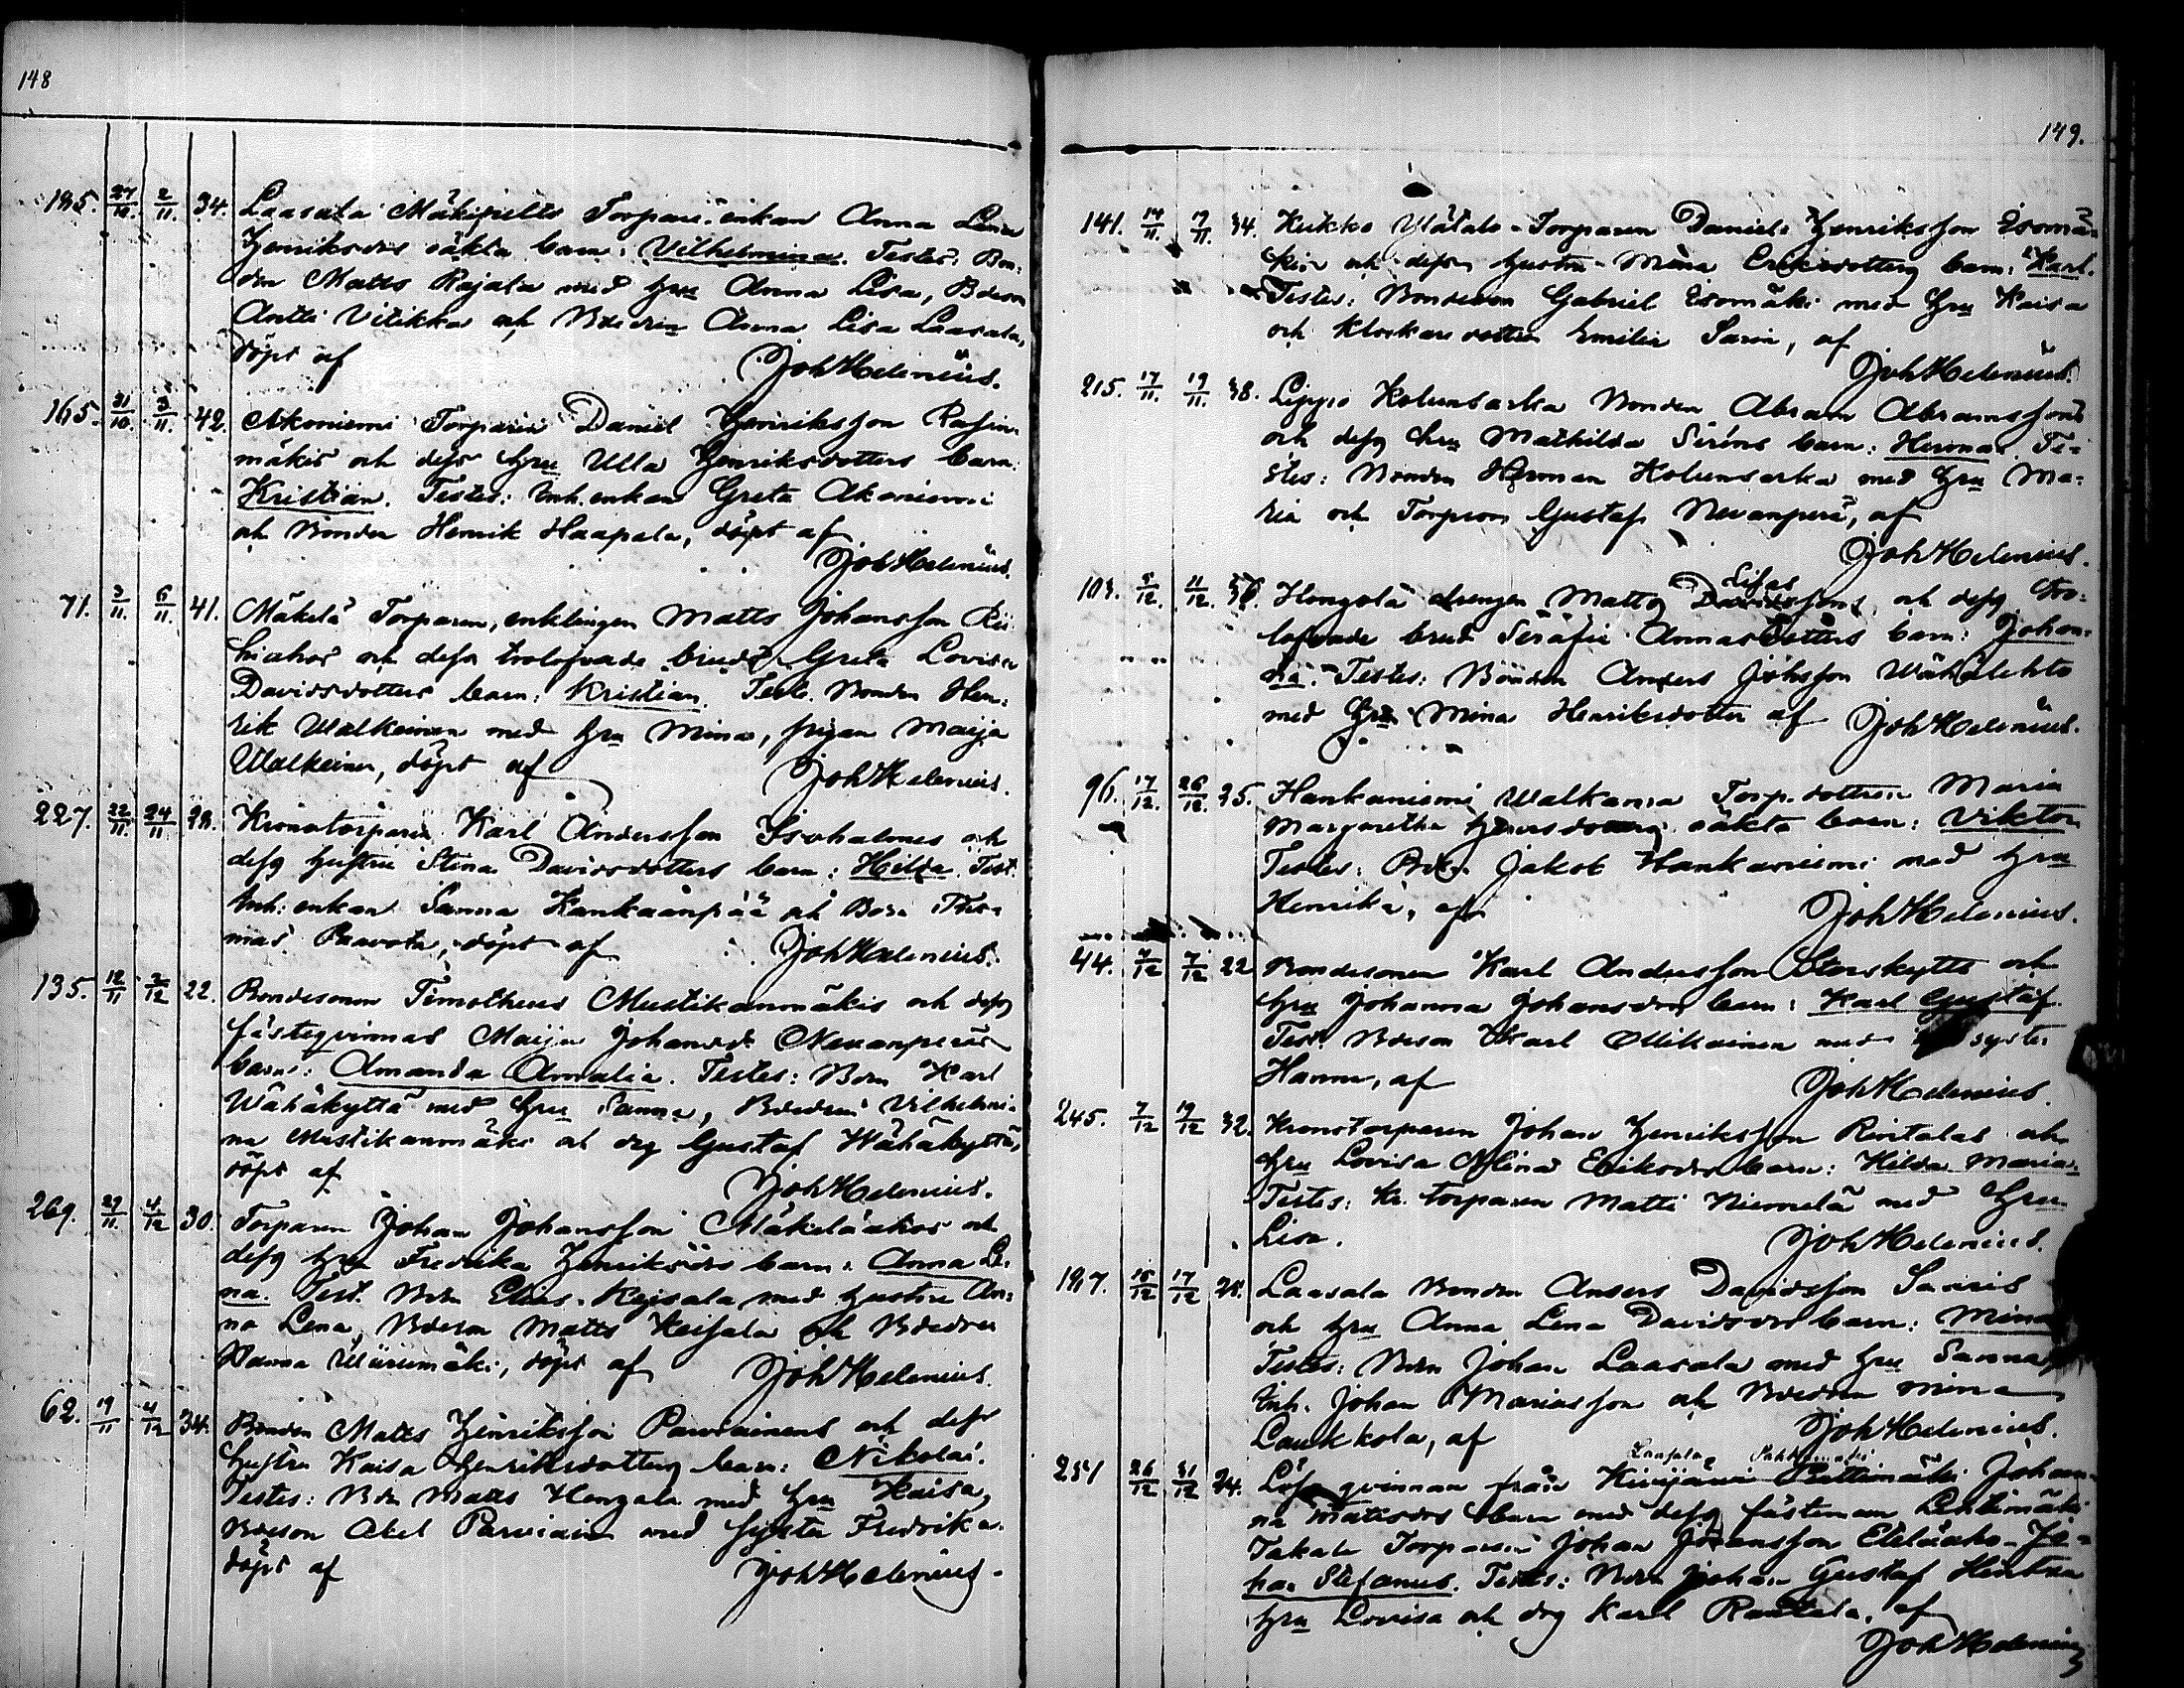 148
185. 27/10. 2/11. 34. Laasala Mäkipelto Torpare enkan Anna Lena
Henriksdrs oäkta barn: Vilhelmina. Testes: Bon-
den Matts Rajala med hru Anna Lisa, Bdeson
Antti Vitikka och Bdedrn Anna Lisa Laasala,
döpt af Joh Helenius.
165. 31/10. 3/11. 42. Akoniemi Torparen Daniel Henriksson
mäkis och dess hru Ulla Henriksdotters barn:
Kristian. Testes: Inh. enkan Greta Akoniemi
och Bonden Henrik Haapala, döpt af
Joh Helenius.
71. 3/11. 6/11. 41. Mäkelä Torparen, enklingen Matts Johansson
och dess trolofvade brud Greta Lovisa
Davidsdotters barn: Kristian. Teste. Bonden Hen-
rik Walkeinen med hru Mina, pigan Maija
Walkeinen, döpt af Joh Helenius.
227. 22/11. 24/11 28. Kronotorparen Karl Andersson Isohalmes och
dess hustru Stina Davidsdotters barn: Hilda. Test.
Inh. enkan Sanna Kankaanpää och Bdsn Tho-
mas Paavola, döpt af Joh Helenius.
135. 12/11 2/12 22. Bondesonen Timotheus Mustikanmäkis och dess
fästeqvinnas Maija Johansd. Nevanperäs
barn: Amanda Amalia. Testes: Bdn Karl
Wähäkyttä med hru Sanna, Bdedrn Vilhelmi-
na Mustikanmäki och drg Gustaf Wähäkyttä,
döpt af Joh Helenius.
269. 27/11. 4/12 30. Torparen Johan Johansson Mäkeläahos och
dess hru Fredrika Henriksdrs barn: Anna Le-
na. Test. Bdn Elias Keisala med hustru An-
na Lena, Bdeson Matts Keisala och Bdedrn
Sanna döpt af Joh Helenius.
62. 19/11 4/12 34. Bonden Matts Henriksson Parviainens och dess
hustru Kaisa Henriksdotters barn: Nikolai.
Testes: Bdn Matts Hengala med hru Kaisa,
Bdeson Abel Parviain med syster Fredrika.
döpt af Joh Helenius.
149.
141. 14/11. 19/11. 34. Kukko Ylätalo Torparen Daniel Henriksson Isomä-
kis och dess hustru Mina Eriksdotters barn: Karl.
Testes: Bondeson Gabriel Isomäki med hru Kaisa
och Klockare dottren Emilia Sarin, af
Joh Helenius.
215. 17/11. 19/11. 38. Lippo Kolunsarka Bonden Abram Abramssons
och dess hru Mathilda Siréns barn: Herman. Te-
stes: Bonden Herman Kolunsarka med hru Ma-
ria och Torpson Gustaf Nevanperä, af
Joh Helenius.
103. 5/12. 11/12. Hongola drengen Matts Davidssons och dess tro-
lofvade brud Serafia Annasdotters barn: Johan-
na. Testes: Bonden Anders Johsson Wähälehto
med hru Mina Henriksdotter af Joh Helenius.
96. 17/12. 26/12. 25. Hankaniemi Walkama Torp.dottren Maria
Margaretha oäkta barn: Viktor
Testes: Bdn Jakob Hankaniemi med hru
Henrika, af Joh Helenius.
44. 7/12 7/12 22 Bondesonen Karl Andersson Storskytts och
hru Johanna Johansdrs barn: Karl Gustaf.
Test. Bdeson Karl Ollikainen med syster
Hanna, af Joh Helenius.
245. 7/12 19/12 32. Kronotorparen Johan Henriksson Rintalas och
hru Lovisa Alina Eriksdrs barn: Hilda Maria.
Testes: Kr. torparen Matti Niemelä med hru
Lisa. Joh Helenius.
187. 15/12 17/12 28. Laasala Bonden Anders Davidsson Saaris
och hru Anna Lena Davidsdrs barn: Mina
Testes: Bdn Johan Laasala med hru Sanna,
Inh. Johan Mariasson och Bdedrn Mina
Laukkola, af Joh Helenius.
251 26/12 31/12 24. Lösa qvinnan från Johan-
na Mattsdrs barn med dess fästeman Lehtimäki
Takala Torparson Johan Johansson Eteläaho Jo-
han Stefanus. Testes: Bdn Johan Gustaf
hru Lovisa och drg Karl Rantala, af
Joh Helenius